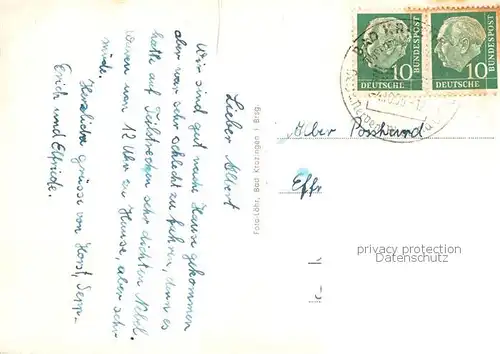 Lieber Albert
Wir sind gut nach Hause gekommen
aber war sehr schlecht zu fahren, denn es
hatte auf Teilstrecken sehr dichten Nebel.
Waren um 12 Uhr zu Hause, aber sehr
müde.
Herzliche Grüsse von Horst, Sepp.
Erich und Elfriede.
Foto-Löhr, Bad Krozingen i. Brsg.
10 DEUTSCHE BUNDESPOST
10 DEUTSCHE BUNDESPOST
BAD KR
Ober Postsekr
Effr
privacy protection
Datenschutz